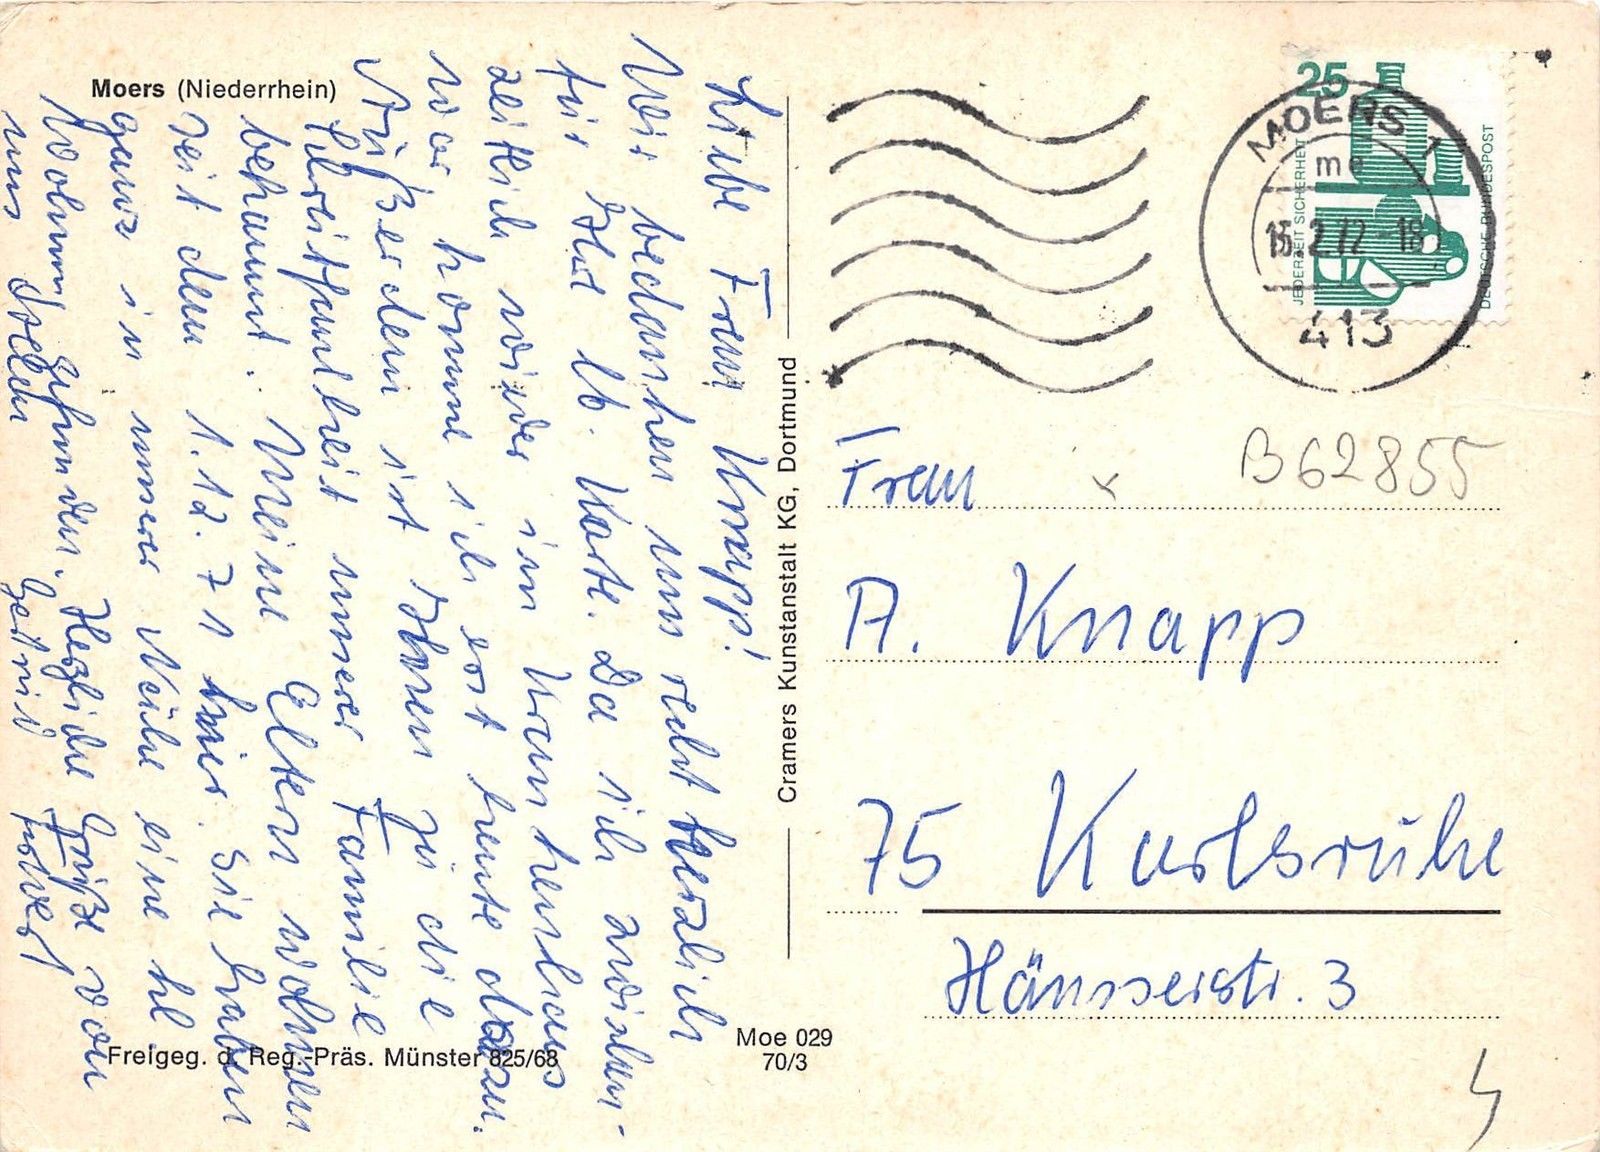 Moers (Niederrhein)
Liebe Frau Knapp!
Wir bedanken uns recht herzlich
für Ihre lb. Karte. Da ich zwischen-
zeitlich wieder im Krankenhaus
war komme ich erst heute dazu.
Außerdem ist Ihnen ja die
Schreibfaulheit unserer Familie
bekannt. Meine Eltern wohnen
seit dem 1.12.71 hier. Sie haben
ganz in unserer Nähe eine kl.
Wohnung gefunden. Herzliche Grüße von
uns
Cramers Kunstanstalt KG, Dortmund
Freigeg. d. Reg.-Präs. Münster 825/68
Moe 029
70/3
25
JEDERZEIT SICHERHEIT
DEUTSCHE BUNDESPOST
MOERS 1
me
2.72-18
413
B62855
Frau
A. Knapp
75 Karlsruhe
Häusserstr. 3